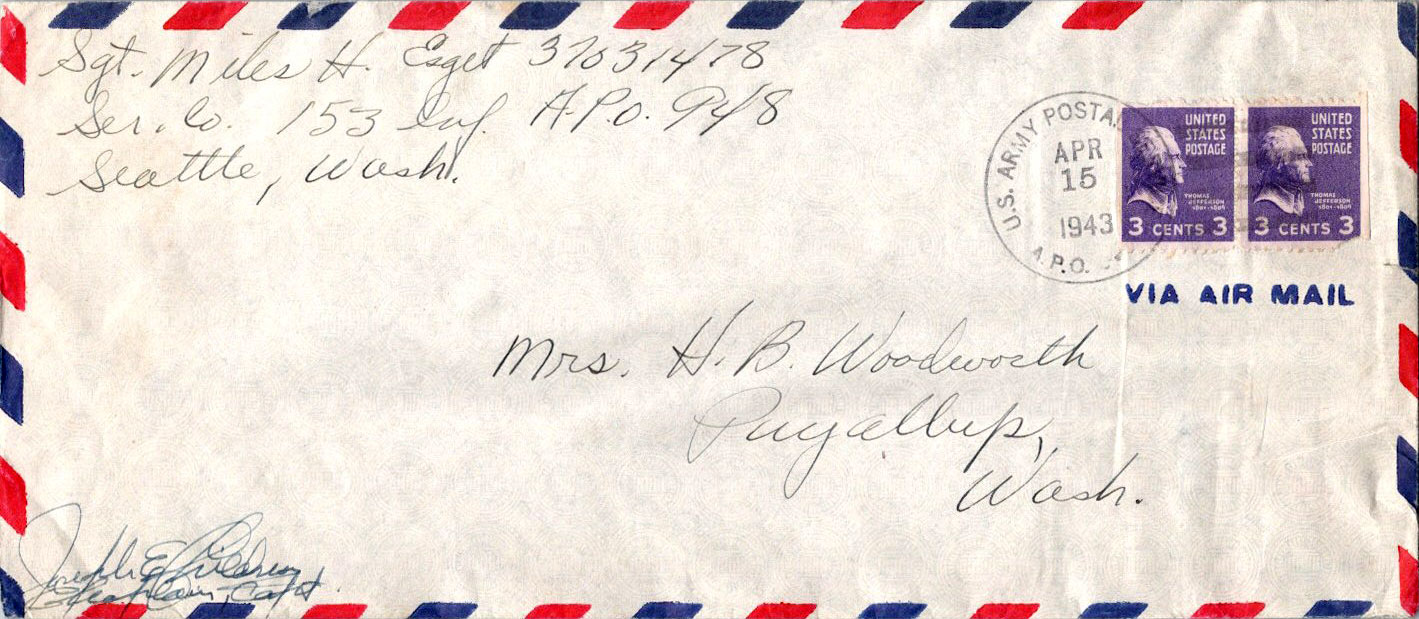 Sgt. Miles H. Esget 37031478
Ser. Co. 153 Inf. A.P.O. 948
Seattle, Wash.
U.S. ARMY POSTAL
APR
15
1943
A.P.O.
UNITED
STATES
POSTAGE
THOMAS
JEFFERSON
1801-1809
3 CENTS 3
UNITED
STATES
POSTAGE
THOMAS
JEFFERSON
1801-1809
3 CENTS 3
VIA AIR MAIL
Mrs. H. B. Woodworth
Puyallup,
Wash.
Joseph E.
Chaplain, Capt.